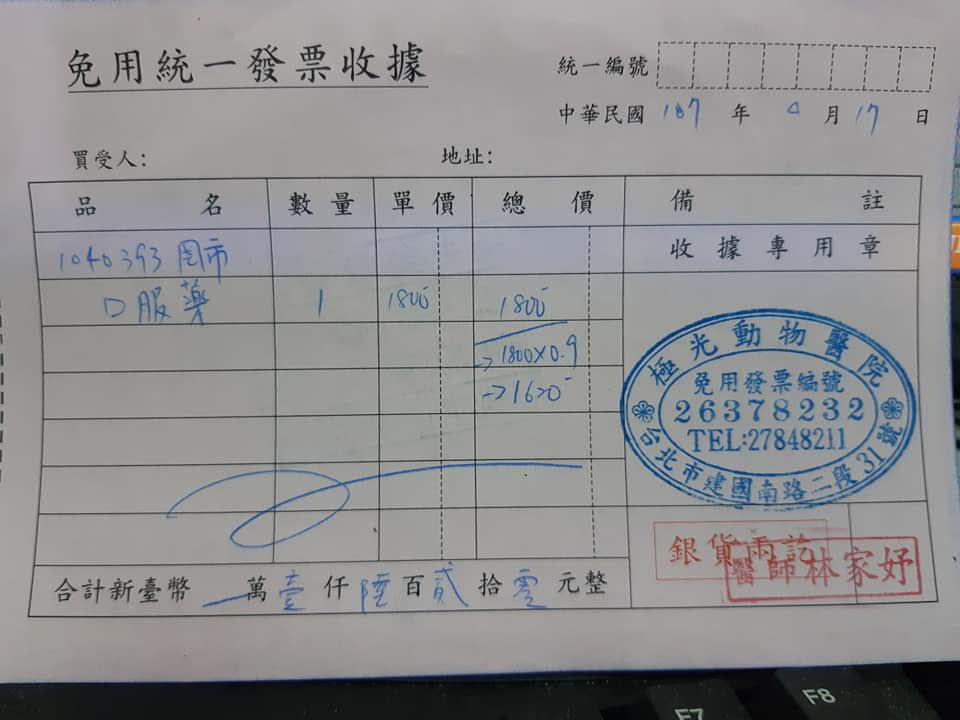 免用統一發票收據
統一編號
中華民國 107 年 9 月 17 日
買受人： 地址：
品名 數量 單價 總價 備註
1040393 周市 收據專用章
口服藥 1 1800 1800
→1800×0.9
→1620
極光動物醫院
免用發票編號
26378232
TEL:27848211
台北市建國南路二段31號
銀貨兩訖
醫師林家妤
合計新臺幣 萬 壹 仟 陸 百 貳 拾 零 元整
F7 F8